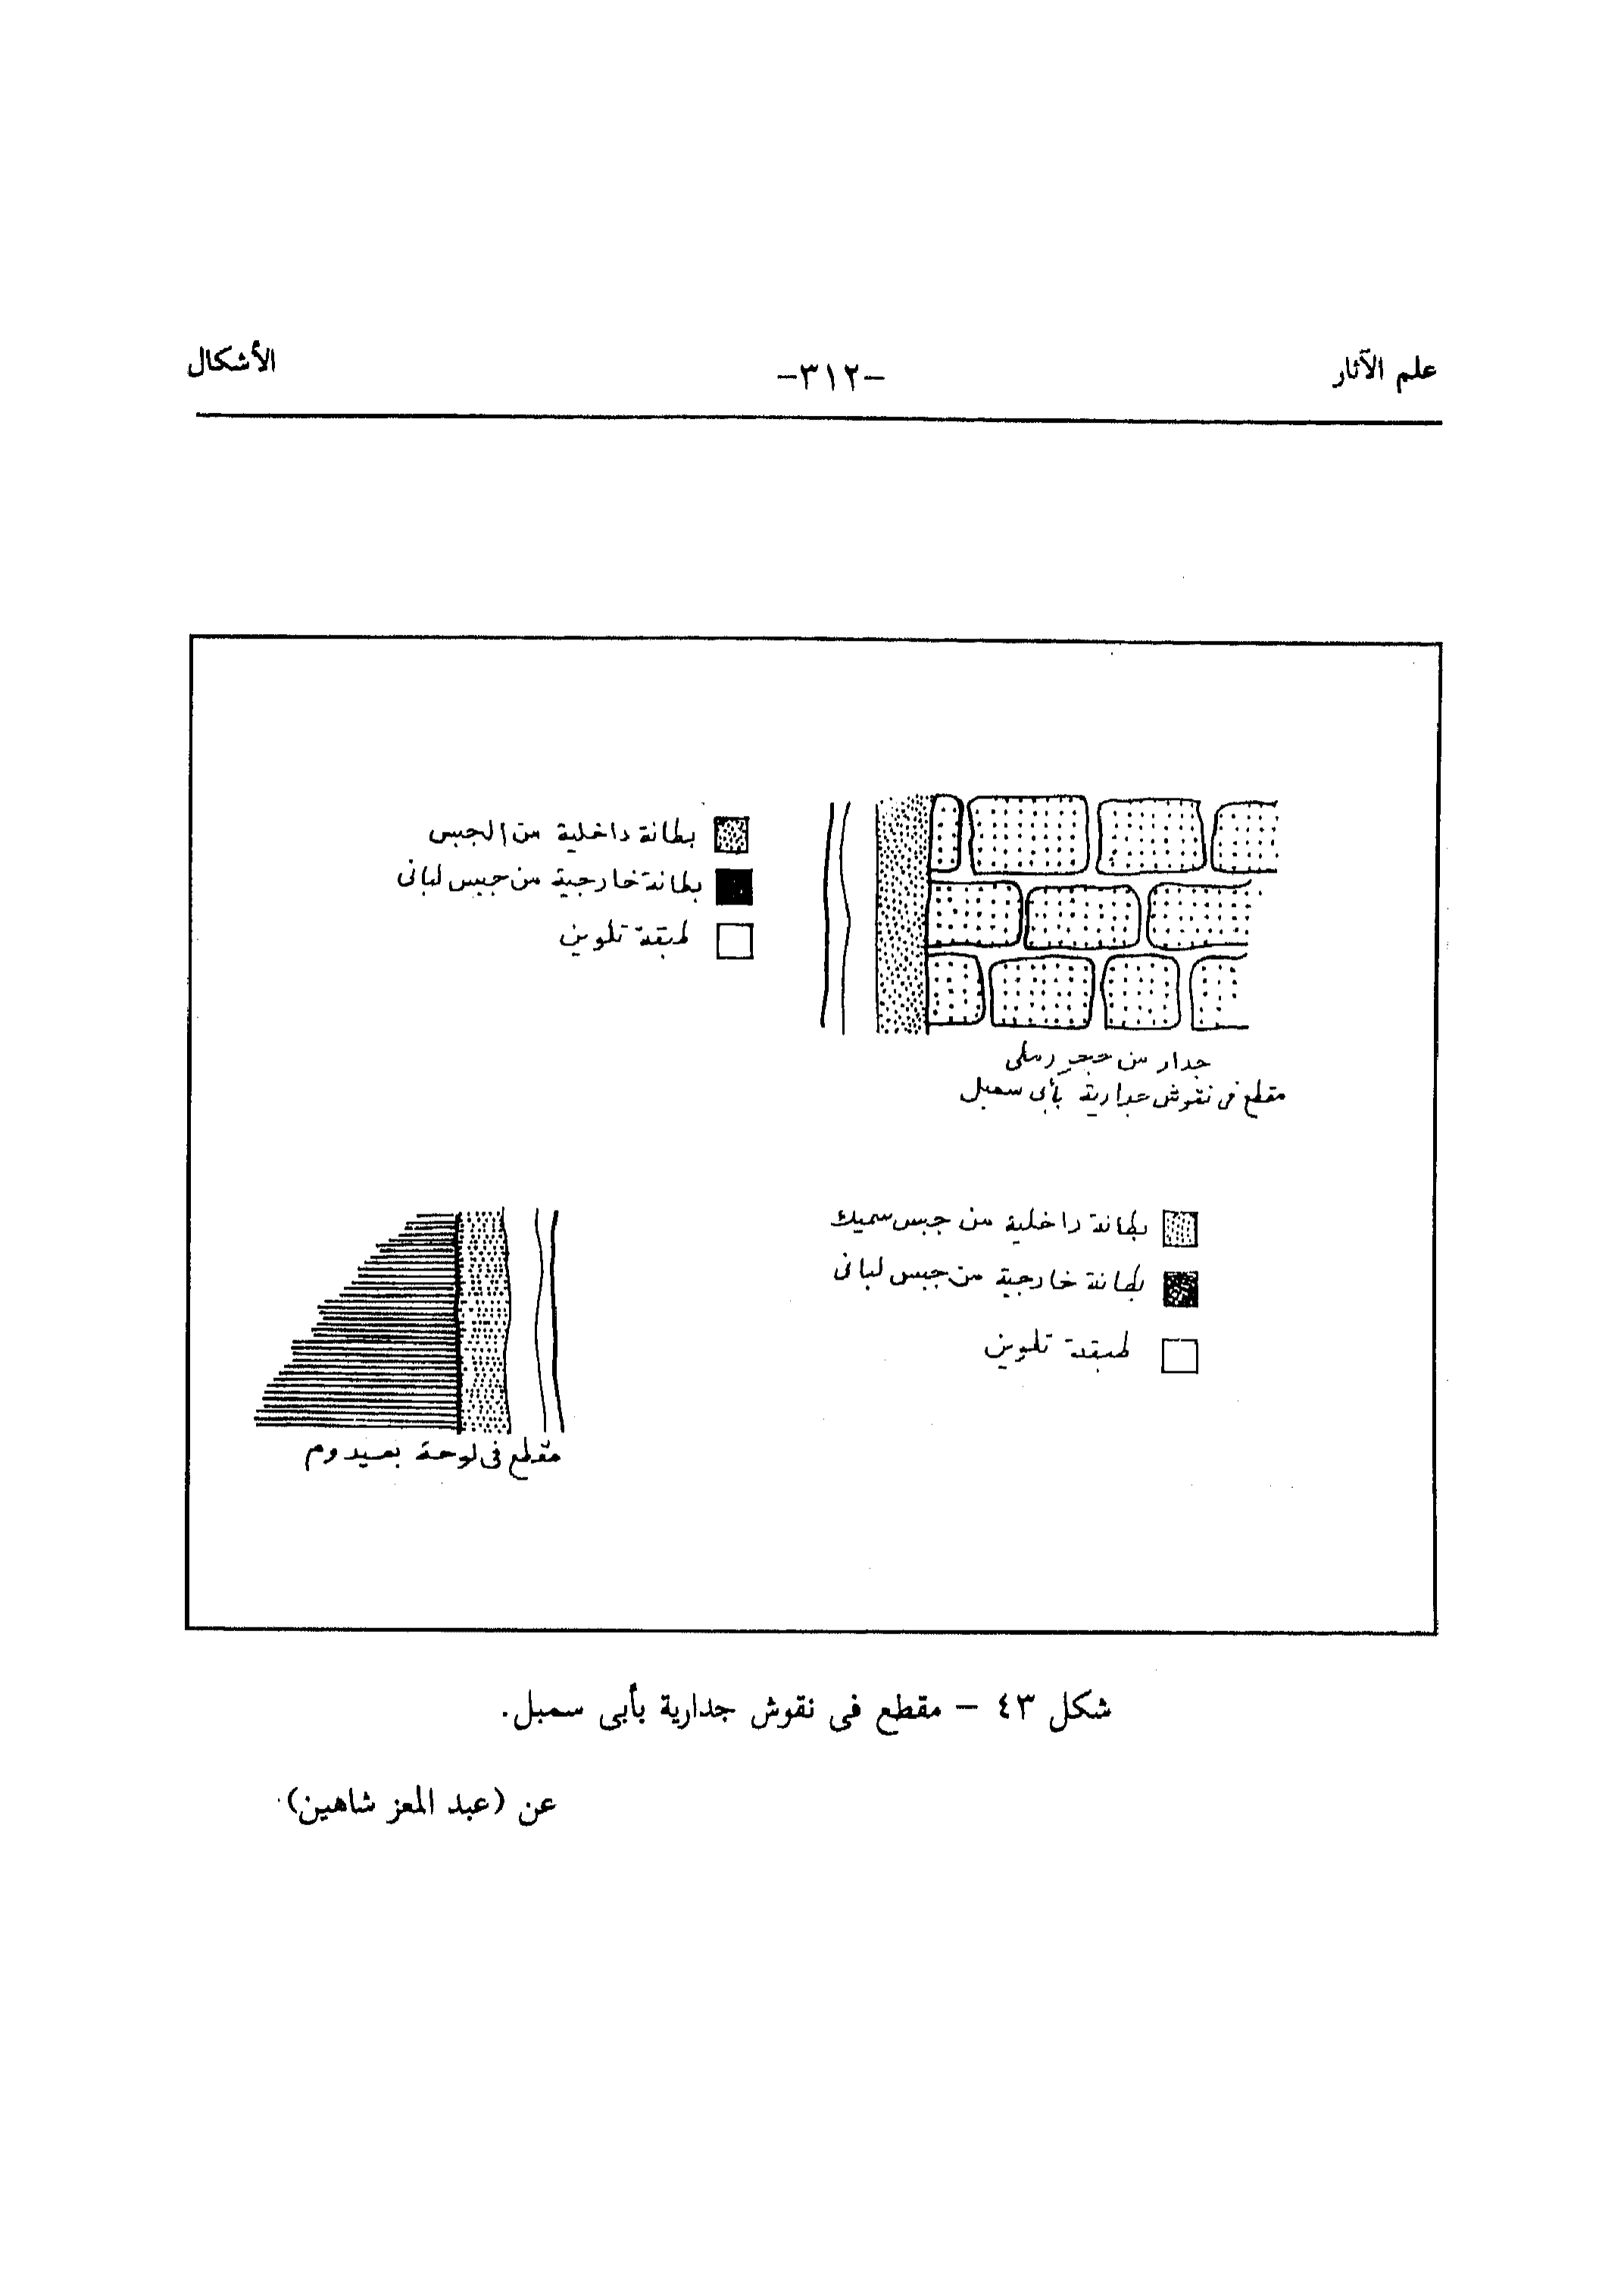 علم الآثار
-٣١٢-
الأشكال
بطانة داخلية من الجبس
بطانة خارجية من جبس لبانى
طبقة تلوين
جدار من حجر رملى
مقطع فى نقوش جدارية بأبى سمبل
بطانة داخلية من جبس سميك
بطانة خارجية من جبس لبانى
طبقة تلوين
مقطع فى لوحة بميدوم
شكل ٤٣ – مقطع فى نقوش جدارية بأبى سمبل.
عن (عبد المعز شاهين)